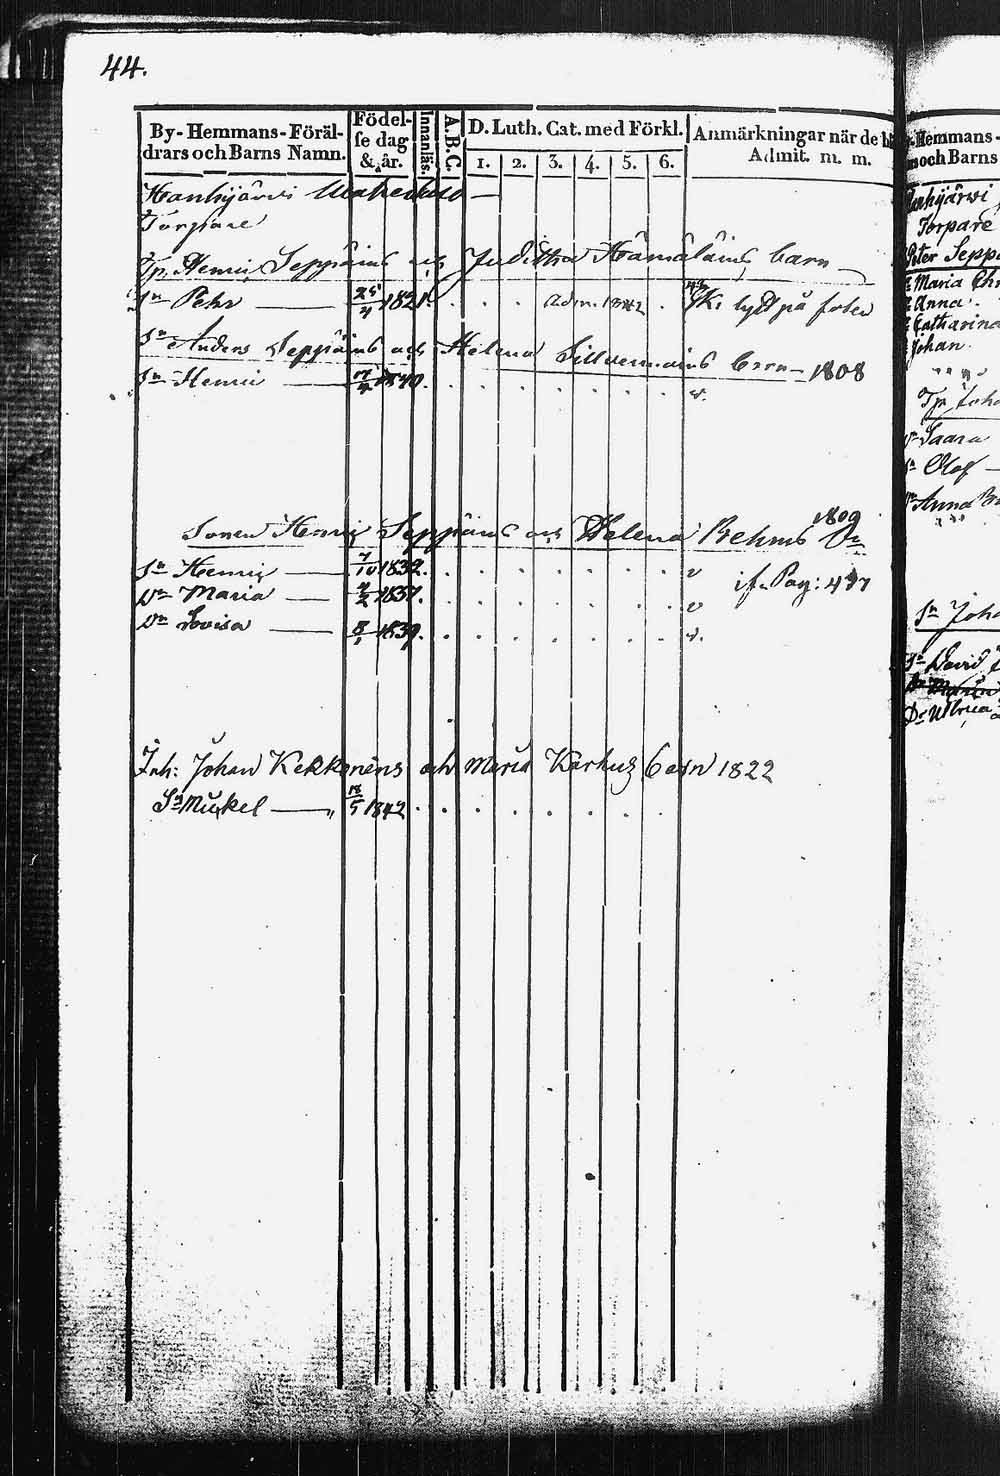 44.
By-Hemmans-Föräl-
drars och Barns Namn.
Födel-
se dag
& år.
Innanläs.
A.B.C.
D. Luth. Cat. med Förkl.
1. 2. 3. 4. 5. 6.
Anmärkningar när de b
Admit. m. m.
Hanhijärvi
Torpare
Tp. Henric Seppäins och Juditha Hämäläins barn
Sn Pehr 25/4 1821. adm. 1842 på
Sn Anders Seppäins och Helena Sillvennoins barn 1808
Sn Henric 1840. v.
Sonen Henric Seppäins och Helena Rehns 1809
Sn Henric 7/10 1832. v
Dn Maria 1837. v
Dn Lovisa 8/1 1839. v.
if. Pag: 417
Inh: Johan Kekkonens och Maria Karhus barn 1822
Sn Mickel 18/5 1842
Hemmans-
och Barns
Torpare
Peter Seppä
Maria Chr
Anna
Catharina
Johan
Tp. Joha
Saara
Sn Olof
Anna
Sn Joha
Sn David
Dr Ulrica